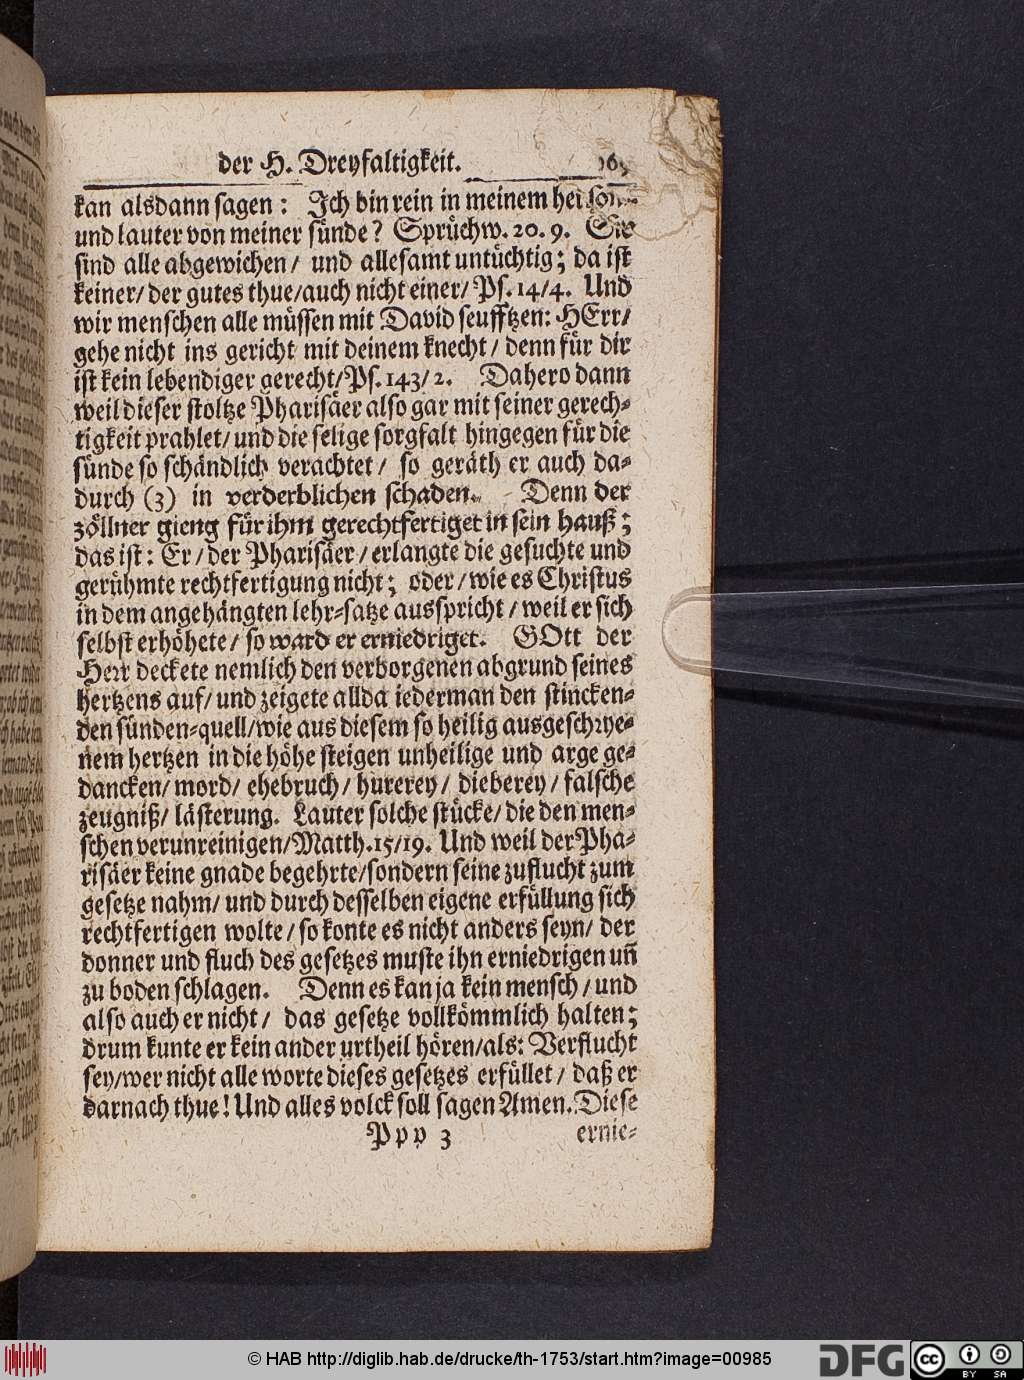 der H. Dreyfaltigkeit.
kan alsdann sagen: Ich bin rein in meinem
und lauter von meiner sünde? Sprüchw. 20. 9. Sie
sind alle abgewichen/ und allesamt untüchtig; da ist
keiner/ der gutes thue/ auch nicht einer/ Ps. 14/4. Und
wir menschen alle müssen mit David seufftzen: HErr/
gehe nicht ins gericht mit deinem knecht/ denn für dir
ist kein lebendiger gerecht/ Ps. 143/2. Dahero dann
weil dieser stoltze Pharisäer also gar mit seiner gerech-
tigkeit prahlet/ und die selige sorgfalt hingegen für die
sünde so schändlich verachtet/ so geräth er auch da-
durch (3) in verderblichen schaden. Denn der
zöllner gieng für ihm gerechtfertiget in sein hauß;
das ist: Er/ der Pharisäer/ erlangte die gesuchte und
gerühmte rechtfertigung nicht; oder/ wie es Christus
in dem angehängten lehr-satze ausspricht/ weil er sich
selbst erhöhete/ so ward er erniedriget. GOtt der
Herr deckete nemlich den verborgenen abgrund seines
hertzens auf/ und zeigete allda iederman den stincken-
den sünden-quell/ wie aus diesem so heilig ausgeschrye-
nem hertzen in die höhe steigen unheilige und arge ge-
dancken/ mord/ ehebruch/ hurerey/ dieberey/ falsche
zeugniß/ lästerung. Lauter solche stücke/ die den men-
schen verunreinigen/ Matth. 15/19. Und weil der Pha-
risäer keine gnade begehrte/ sondern seine zuflucht zum
gesetze nahm/ und durch desselben eigene erfüllung sich
rechtfertigen wolte/ so konte es nicht anders seyn/ der
donner und fluch des gesetzes muste ihn erniedrigen uñ
zu boden schlagen. Denn es kan ja kein mensch/ und
also auch er nicht/ das gesetze vollkömmlich halten;
drum kunte er kein ander urtheil hören/ als: Verflucht
sey/ wer nicht alle worte dieses gesetzes erfüllet/ daß er
darnach thue! Und alles volck soll sagen Amen. Diese
Ppp 3 ernie-
© HAB http://diglib.hab.de/drucke/th-1753/start.htm?image=00985
DFG
cc BY SA